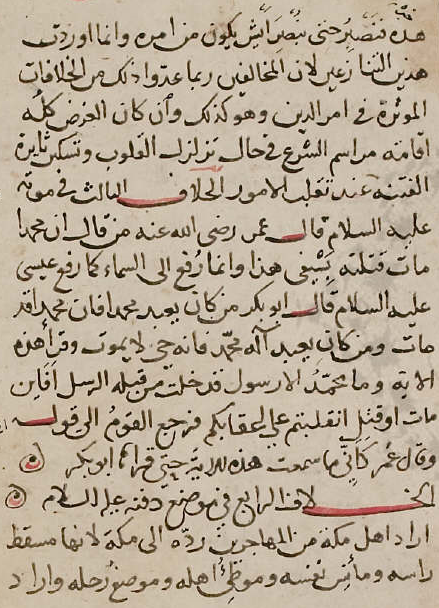 هذه فنصبر حتى نبصر ايش يكون من امره وانما اوردت
هذين التنازعين لان المخالفين ربما عدّوا ذلك من الخلافات
الموثرة في امر الدين وهو كذلك وان كان الغرض كلّه
اقامة مراسم الشرع في حال تزلزل القلوب وتسكين ثايرة
الفتنة عند تقلب الامور الخلاف الثالث في موته
عليه السلام قال عمر رضى الله عنه من قال ان محمدا
مات قتلته بسيفى هذا وانما رُفع الى السماء كما رفع عيسى
عليه السلام قال ابو بكر من كان يعبد محمدا فان محمدا قد
مات ومن كان يعبد آله محمّد فانه حي لا يموت وقرأ هذه
الاية وما محمّدُ الا رسول قد خلت من قبله الرسل افاين
مات او قتل انقلبتم على اعقابكم فرجع القومُ الى قوله
وقال عُمر كَاَنّي ما سمعت هذه الاية حتى قراها ابو بكر
الخلاف الرابع في موضع دفنه عليه السلام
اراد اهل مكة من المهاجرين ردّه الى مكة لانها مسقط
راسه ومأنس نفسه وموطئ اهله وموضع رحله واراد